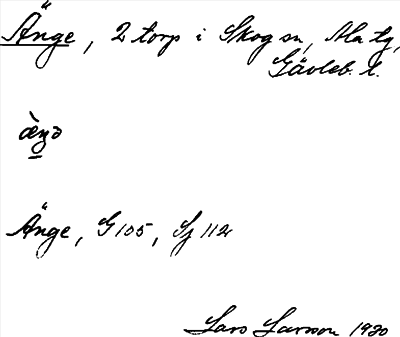 Änge, 2 torp i Skog sn, Ala tg,
Gävleb. l.
Änge, G 105, Sj 112
Lars Larsson 1930